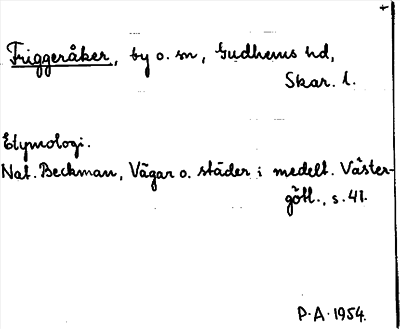 Friggeråker, by o. sn, Gudhems hd,
Skar. l.
Etymologi.
Nat. Beckman, Vägar o. städer i medelt. Väster-
götl., s. 41.
P.A. 1954.